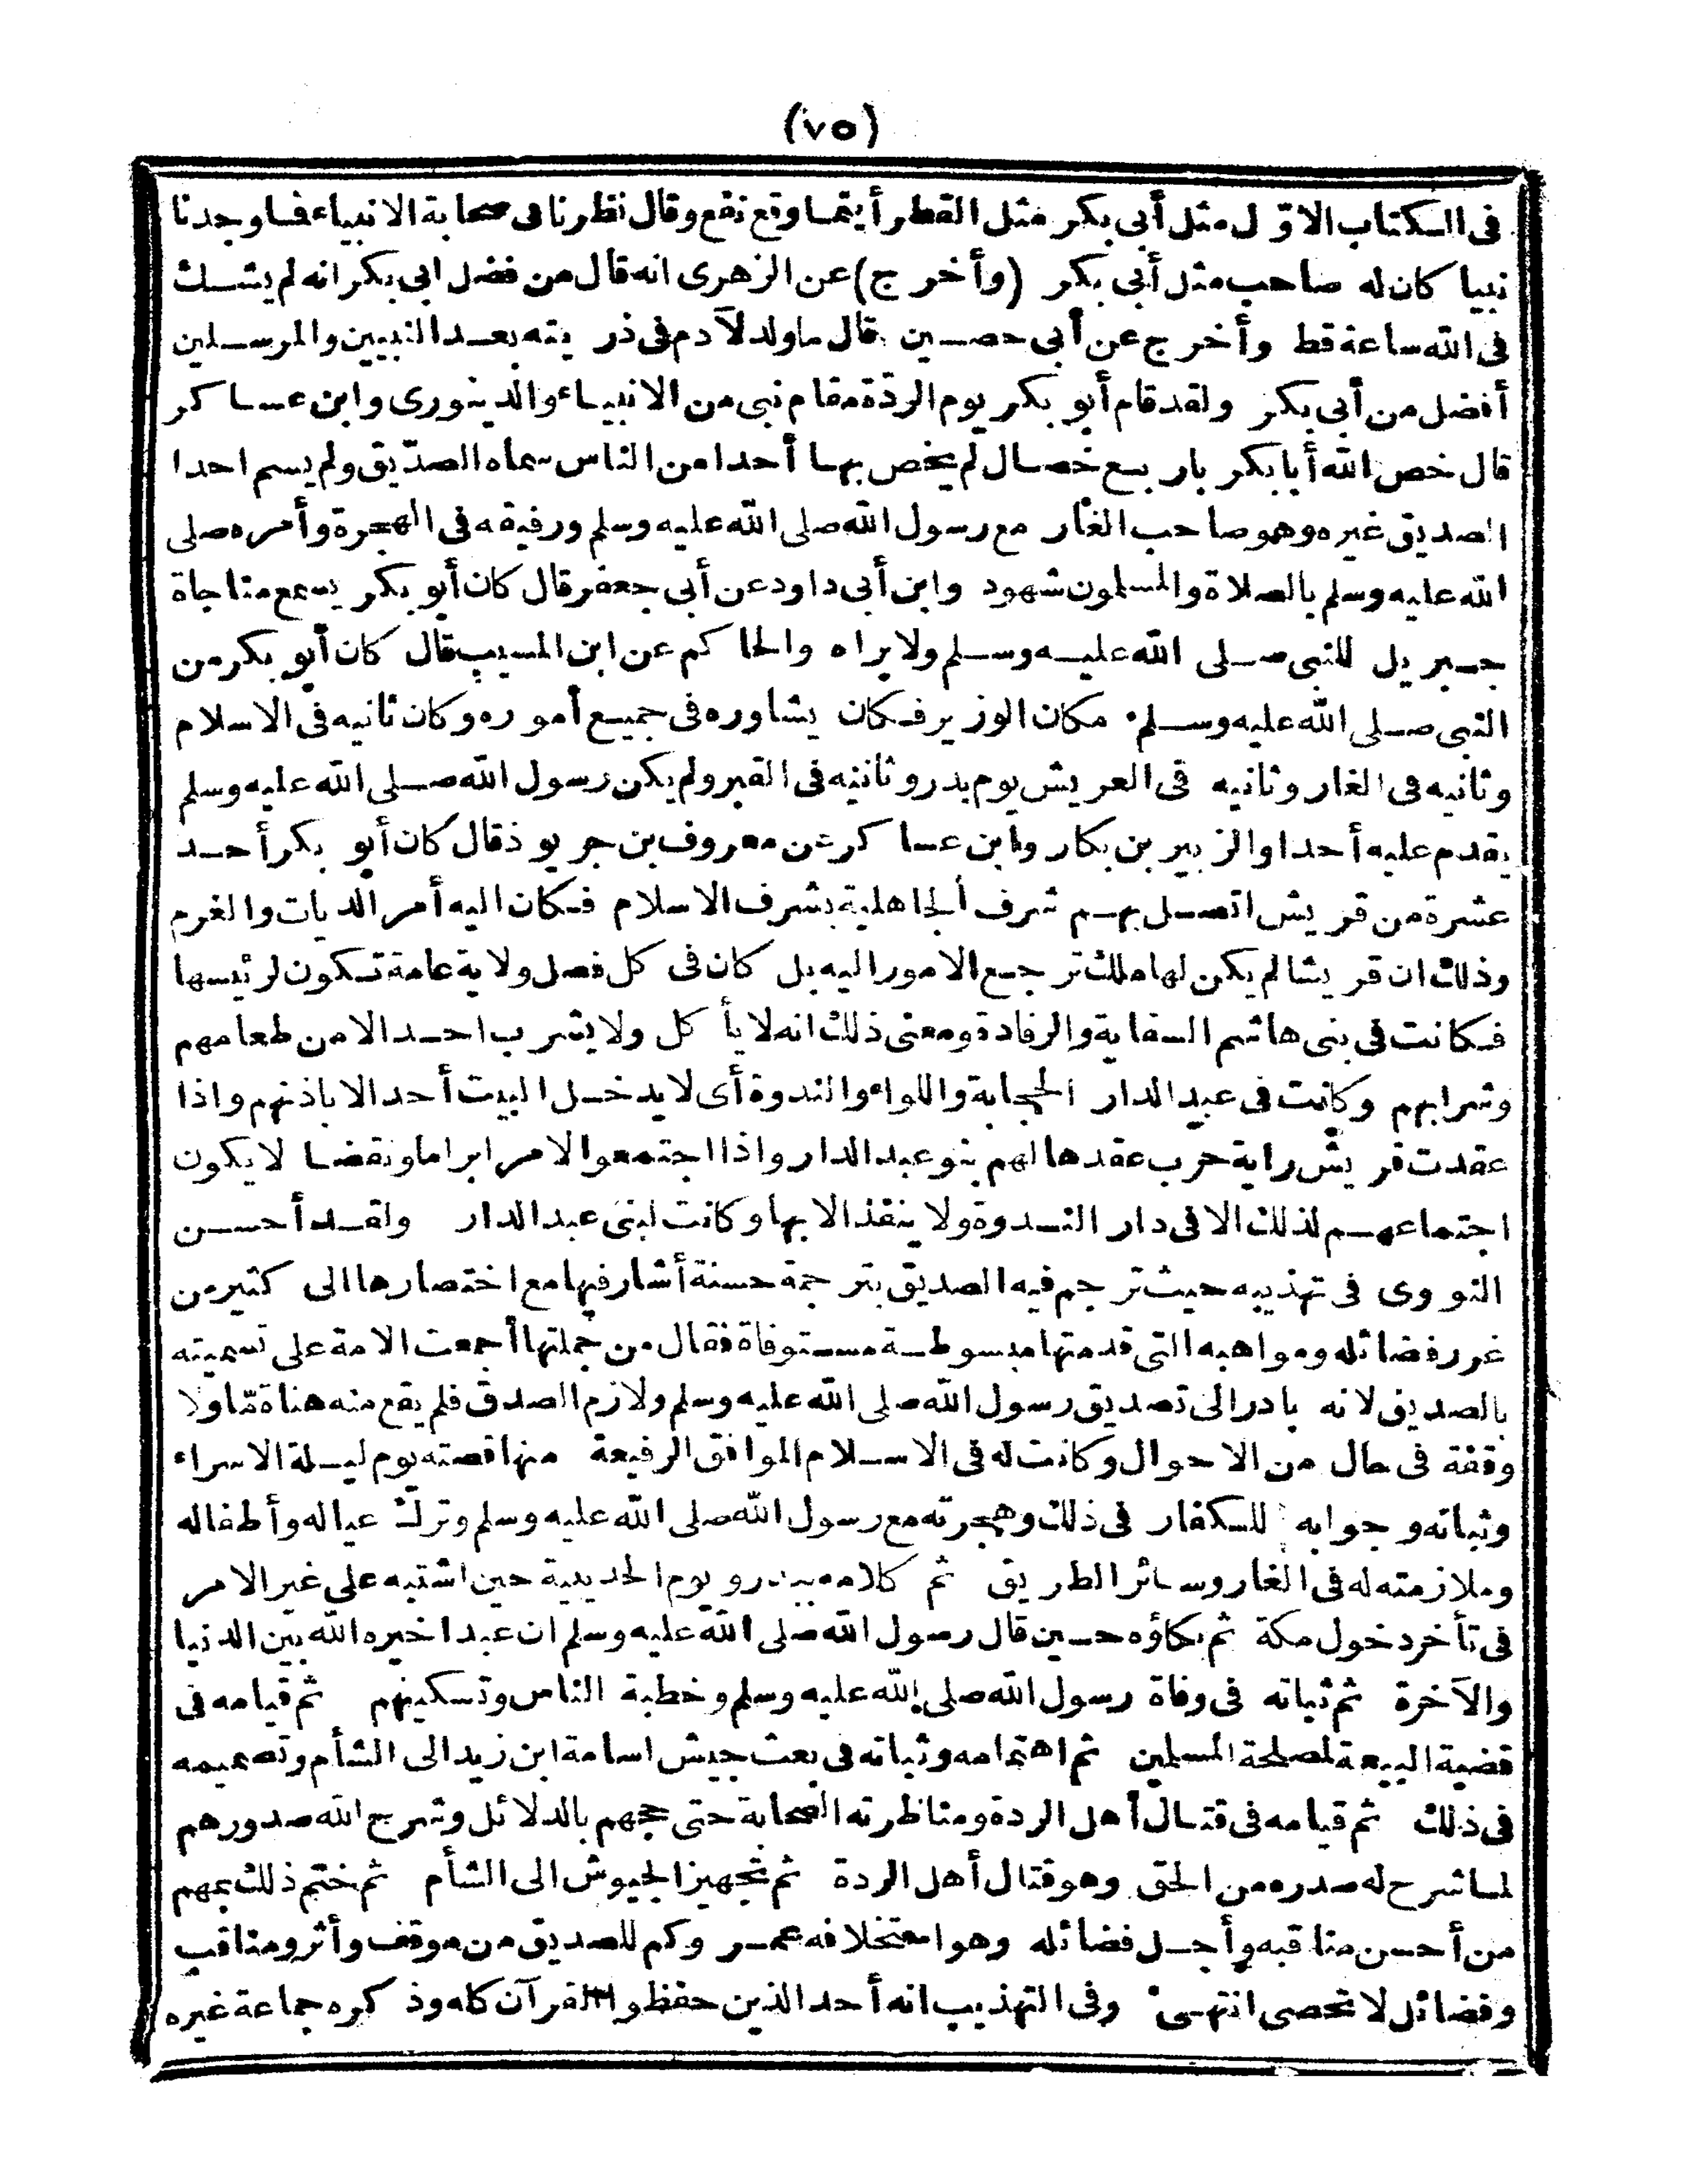 (٧٥)
فى الكتاب الاوّل مثل أبى بكر مثل القطر أيتما وقع نفع وقال نظرنا فى صحابة الانبياء فما وجدنا
نبيا كان له صاحب مثل أبى بكر (وأخرج) عن الزهرى انه قال من فضل ابى بكر انه لم يشك
فى الله ساعة قط وأخرج عن أبى حصين قال ما ولد لآدم فى ذريته بعد النبيين والمرسلين
أفضل من أبى بكر ولقد قام أبو بكر يوم الردّة مقام نبى من الانبياء والدينورى وابن عساكر
قال خص الله أبا بكر باربع خصال لم يخص بها أحدا من الناس سماه الصدّيق ولم يسم احدا
الصديق غيره وهو صاحب الغار مع رسول الله صلى الله عليه وسلم ورفيقه فى الهجرة وأمره صلى
الله عليه وسلم بالصلاة والمسلمون شهود وابن أبى داود عن أبى جعفر قال كان أبو بكر يسمع مناجاة
جبريل للنبى صلى الله عليه وسلم ولا يراه والحاكم عن ابن المسيب قال كان أبو بكر من
النبى صلى الله عليه وسلم مكان الوزير فكان يشاوره فى جميع أموره وكان ثانيه فى الاسلام
وثانيه فى الغار وثانيه فى العريش يوم بدر وثانيه فى القبر ولم يكن رسول الله صلى الله عليه وسلم
يقدم عليه أحدا والزبير بن بكار وابن عساكر عن معروف بن جربوذ قال كان أبو بكر أحد
عشرة من قريش اتصل بهم شرف الجاهلية بشرف الاسلام فكان اليه أمر الديات والغرم
وذلك ان قريشا لم يكن لها ملك ترجع الامور اليه بل كان فى كل فصل ولاية عامة تكون لرئيسها
فكانت فى بنى هاشم السقاية والرفادة ومعنى ذلك انه لا يأكل ولا يشرب احد الا من طعامهم
وشرابهم وكانت فى عبد الدار الحجابة واللواء والندوة أى لا يدخل البيت أحد الا باذنهم واذا
عقدت قريش راية حرب عقدها لهم بنو عبد الدار واذا اجتمعوا لامر ابراما ونقضا لا يكون
اجتماعهم لذلك الا فى دار الندوة ولا ينفذ الا بها وكانت لبنى عبد الدار ولقد أحسن
النووى فى تهذيبه حيث ترجم فيه الصديق بترجمة حسنة أشار فيها مع اختصارها الى كثير من
غرر فضائله ومواهبه التى قدمتها مبسوطة مستوفاة فقال من جملتها أجمعت الامة على تسميته
بالصديق لانه بادر الى تصديق رسول الله صلى الله عليه وسلم ولازم الصدق فلم يقع منه هناة مّا ولا
وقفة فى حال من الاحوال وكانت له فى الاسلام المواقف الرفيعة منها قصته يوم ليلة الاسراء
وثباته وجوابه للكفار فى ذلك وهجرته مع رسول الله صلى الله عليه وسلم وترك عياله وأطفاله
وملازمته له فى الغار وسائر الطريق ثم كلامه ببدر ويوم الحديبية حين اشتبه على غير الامر
فى تأخر دخول مكة ثم بكاؤه حين قال رسول الله صلى الله عليه وسلم ان عبدا خيره الله بين الدنيا
والآخرة ثم ثباته فى وفاة رسول الله صلى الله عليه وسلم وخطبة الناس وتسكينهم ثم قيامه فى
قضية البيعة لمصلحة المسلمين ثم اهتمامه وثباته فى بعث جيش اسامة ابن زيد الى الشأم وتصميمه
فى ذلك ثم قيامه فى قتال أهل الردة ومناظرته الصحابة حتى حجهم بالدلائل وشرح الله صدورهم
لما شرح له صدره من الحق وهو قتال أهل الردة ثم تجهيز الجيوش الى الشأم ثم ختم ذلك بمهم
من أحسن مناقبه وأجل فضائله وهو استخلافه عمر وكم للصديق من موقف وأثر ومناقب
وفضائل لا تحصى انتهى وفى التهذيب انه أحد الذين حفظوا القرآن كله وذكره جماعة غيره